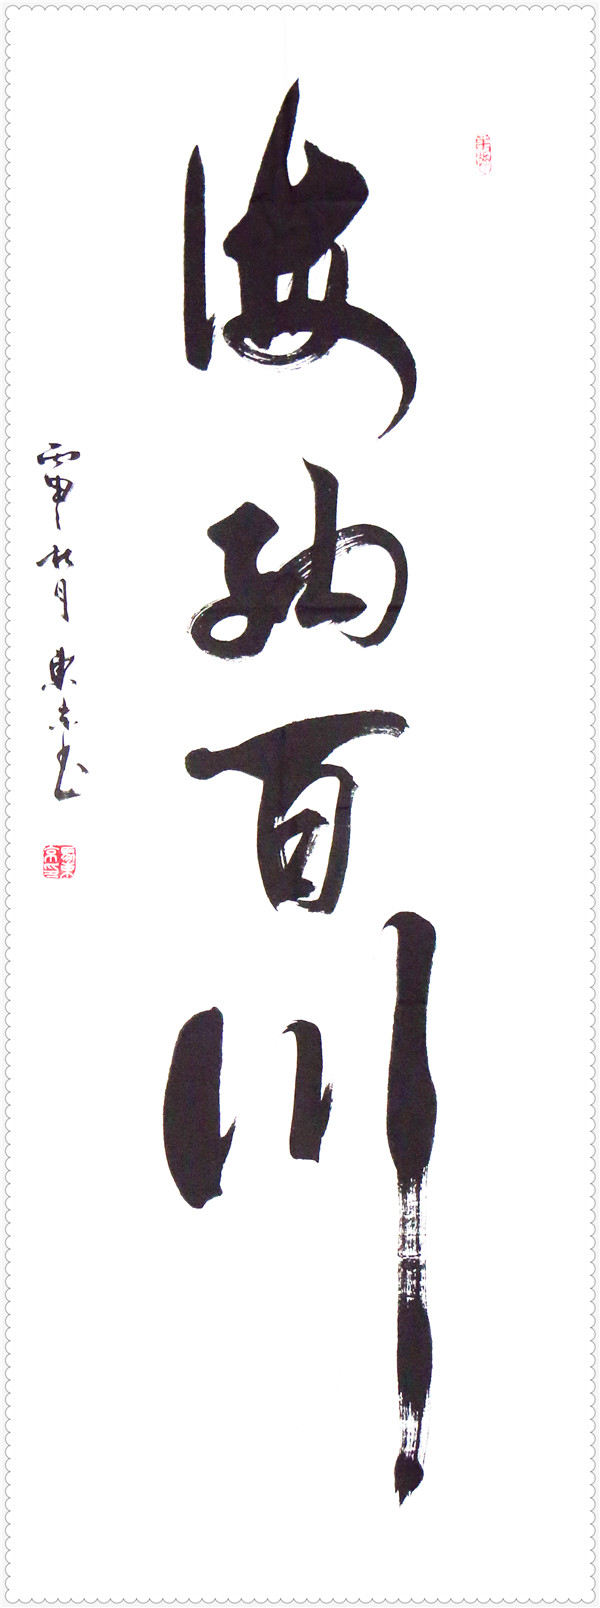 海纳百川
丙申秋月东京书